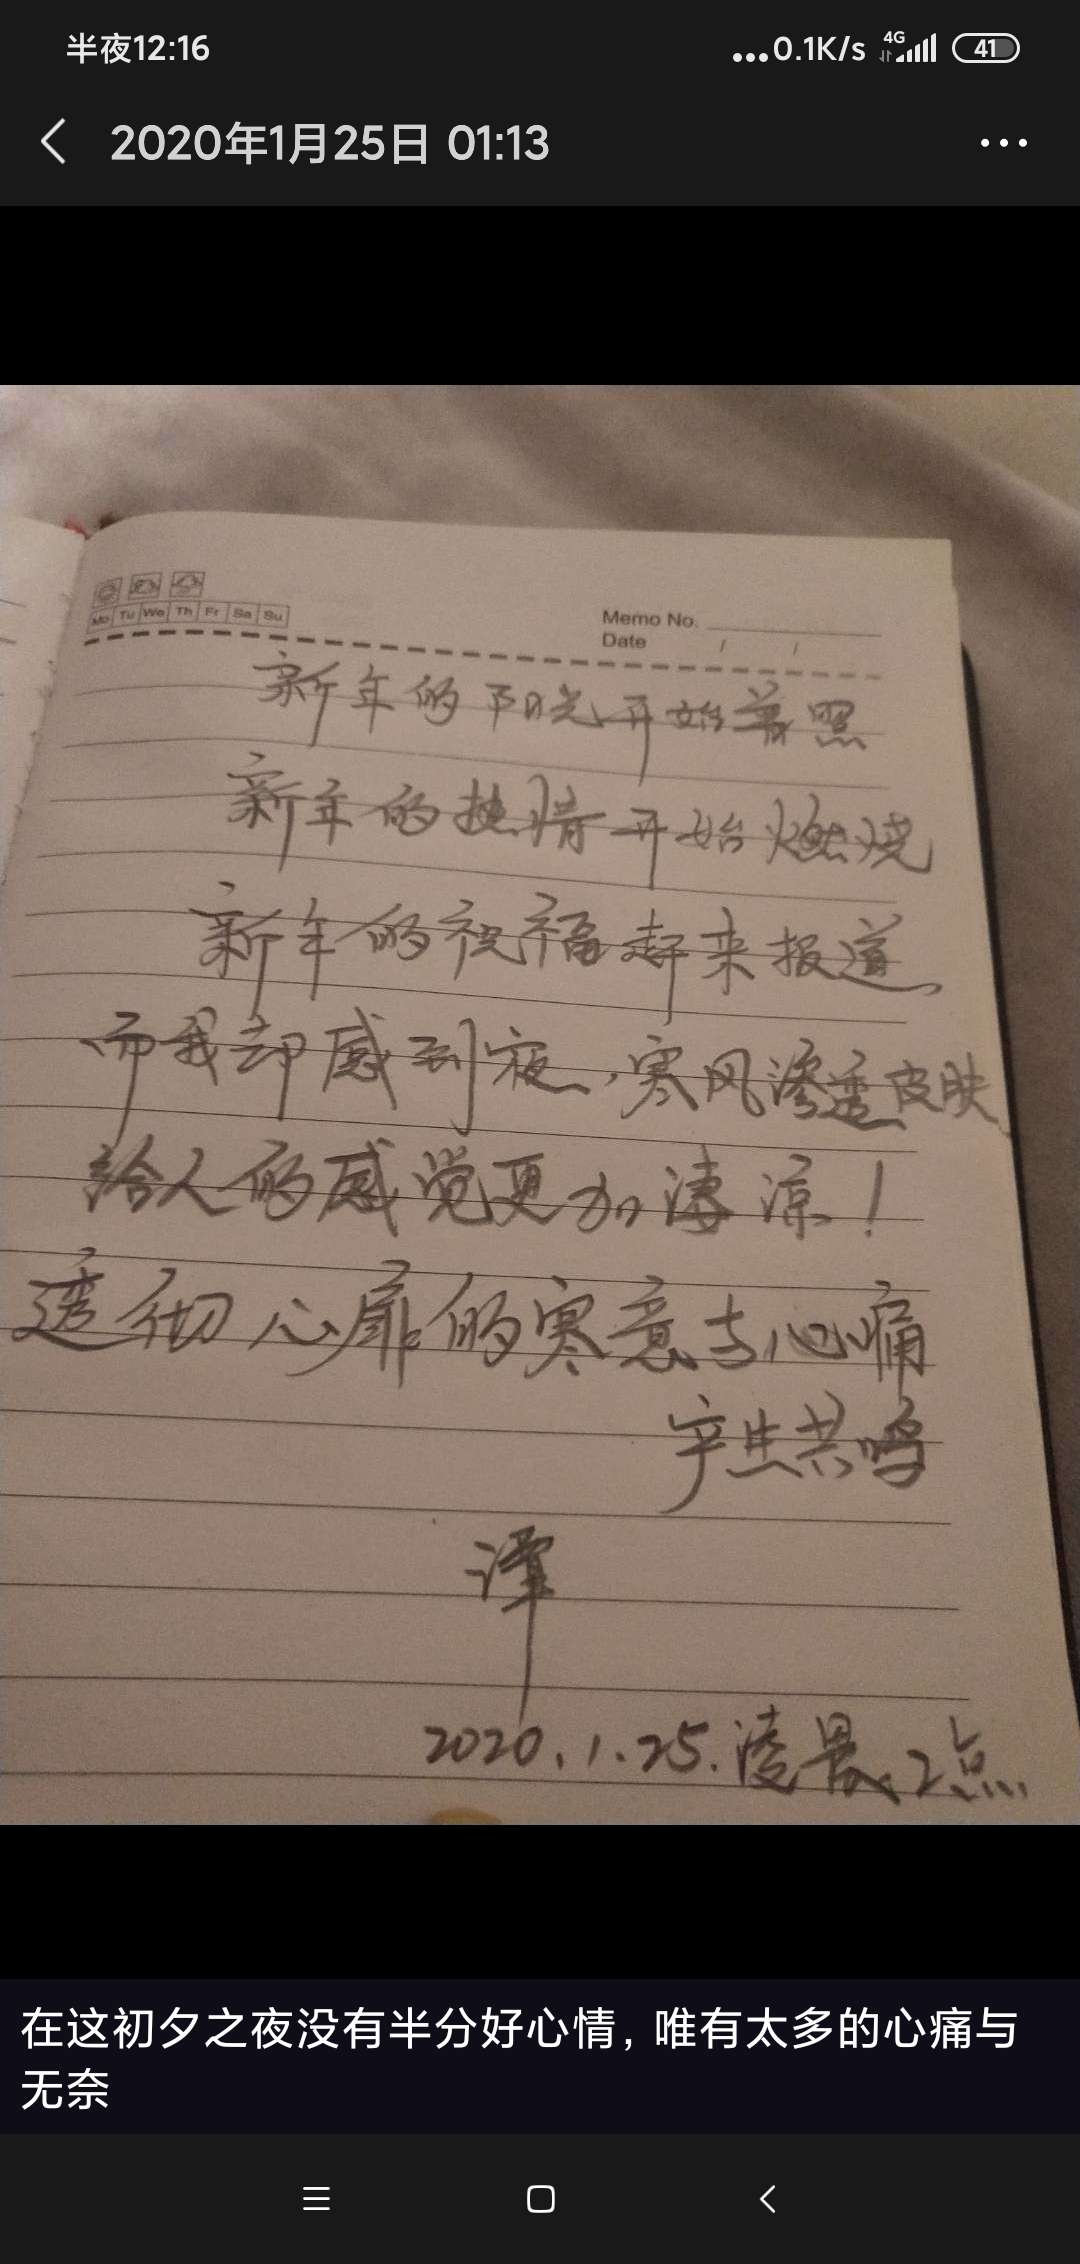 半夜12:16
...0.1K/s 4G 41
2020年1月25日 01:13
Mo Tu We Th Fr Sa Su
Memo No.
Date / /
新年的阳光开始普照
新年的热情开始燃烧
新年的祝福赶来报道
而我却感到夜,寒风渗透皮肤
给人的感觉更加凄凉!
透彻心扉的寒意与心痛
产生共鸣
潭
2020.1.25.凌晨2点
在这初夕之夜没有半分好心情,唯有太多的心痛与
无奈